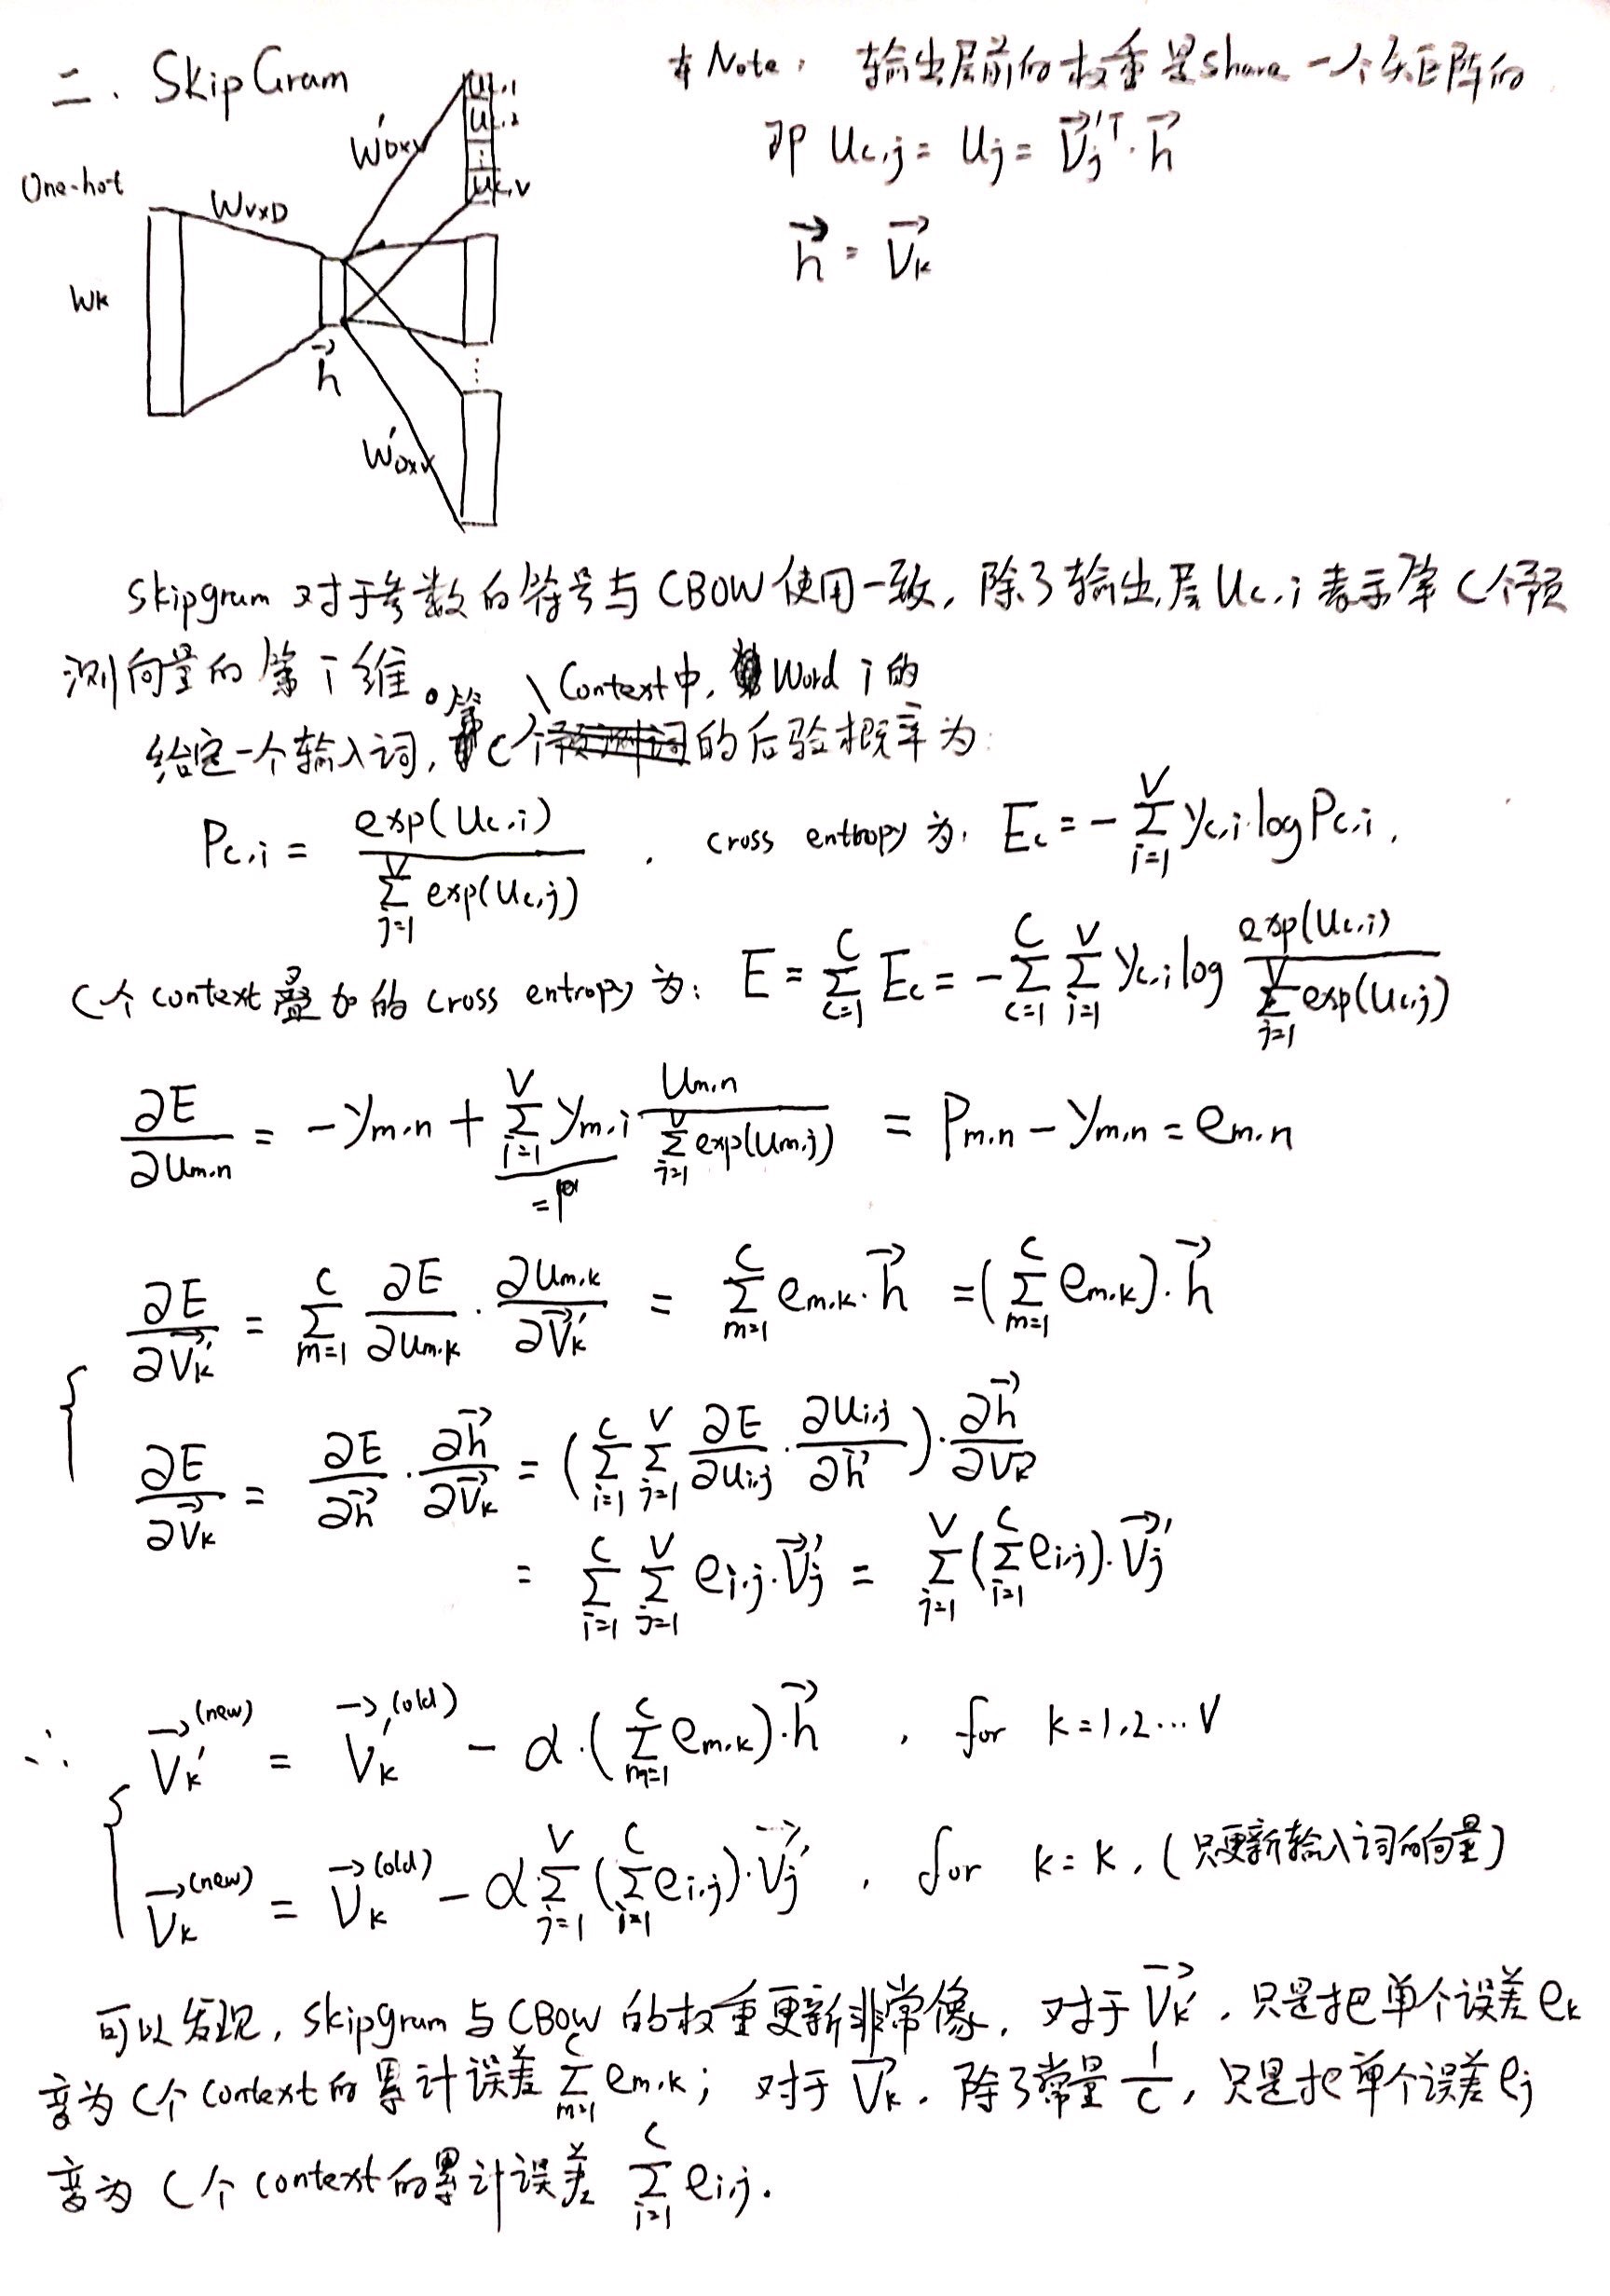 二. Skip Gram
* Note: 输出层前的权重是share一个矩阵的
即 u_{c,j} = u_j = \vec{V}_j'^T·\vec{h}
\vec{h} = \vec{V_k}
u_{c,1}
u_{c,2}
⋮
u_{c,V}
W'_{D×V}
One-hot
W_{V×D}
w_k
\vec{h}
⋮
W'_{D×V}
skipgram 对于参数的符号与CBOW使用一致, 除了输出层 u_{c,i} 表示第C个预
测向量的第 i 维。
给定一个输入词, 第C个Context中, Word i 的的后验概率为:
P_{c,i} = \frac{exp(u_{c,i})}{\sum_{j=1}^{V} exp(u_{c,j})} . cross entropy 为: E_c = -\sum_{i=1}^{V} y_{c,i} log P_{c,i}.
C个context叠加的cross entropy为: E = \sum_{c=1}^{C} E_c = -\sum_{c=1}^{C} \sum_{i=1}^{V} y_{c,i} log \frac{exp(u_{c,i})}{\sum_{j=1}^{V} exp(u_{c,j})}
\frac{∂E}{∂u_{m,n}} = -y_{m,n} + \underbrace{\sum_{i=1}^{V} y_{m,i}}_{=1} \frac{u_{m,n}}{\sum_{j=1}^{V} exp(u_{m,j})} = P_{m,n} - y_{m,n} = e_{m,n}
\frac{∂E}{∂\vec{V_k'}} = \sum_{m=1}^{C} \frac{∂E}{∂u_{m,k}} · \frac{∂u_{m,k}}{∂\vec{V_k'}} = \sum_{m=1}^{C} e_{m,k}·\vec{h} = (\sum_{m=1}^{C} e_{m,k})·\vec{h}
\frac{∂E}{∂\vec{V_k}} = \frac{∂E}{∂\vec{h}} · \frac{∂\vec{h}}{∂\vec{V_k}} = (\sum_{i=1}^{C} \sum_{j=1}^{V} \frac{∂E}{∂u_{i,j}} · \frac{∂u_{i,j}}{∂\vec{h}})·\frac{∂\vec{h}}{∂\vec{V_k}}
= \sum_{i=1}^{C} \sum_{j=1}^{V} e_{i,j}·\vec{V_j'} = \sum_{j=1}^{V} (\sum_{i=1}^{C} e_{i,j})·\vec{V_j'}
∴ \vec{V_k'}^{(new)} = \vec{V_k'}^{(old)} - α·(\sum_{m=1}^{C} e_{m,k})·\vec{h} , for k=1,2…V
\vec{V_k}^{(new)} = \vec{V_k}^{(old)} - α·\sum_{j=1}^{V} (\sum_{i=1}^{C} e_{i,j})·\vec{V_j'} , for k=k, (只更新输入词的向量)
可以发现, skipgram与CBOW的权重更新非常像. 对于\vec{V_k'}, 只是把单个误差e_k
变为C个context的累计误差 \sum_{m=1}^{C} e_{m,k}; 对于\vec{V_k}, 除了常量\frac{1}{C}, 只是把单个误差e_j
变为C个context的累计误差 \sum_{i=1}^{C} e_{i,j}.